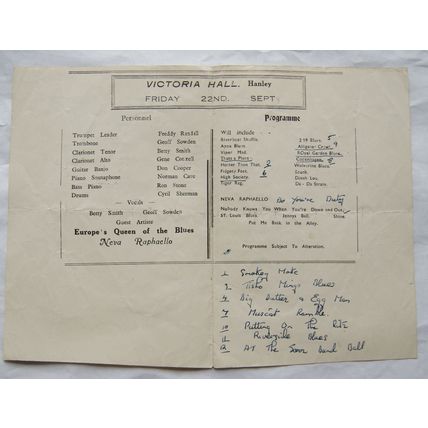 VICTORIA HALL. Hanley
FRIDAY 22ND. SEPT.
Personnel
Trumpet Leader Freddy Randall
Trombone Geoff Sowden
Clarionet Tenor Betty Smith
Clarionet Alto Gene Cottrell
Guitar Banjo Don Cooper
Piano Sousaphone Norman Cave
Bass Piano Ron Stone
Drums Cyril Sherman
Vocals
Betty Smith Geoff Sowden
Guest Artiste
Europe's Queen of the Blues
Neva Raphaello
Programme
Will include
Riverboat Shuffle. 219 Blues. 5
Apex Blues. Alligator Crawl. 9
Viper Mad Royal Garden Blues.
That's a Plenty. Copenhagen. 8
Hotter Than That. 3 Wolverine Blues.
Fidgety Feet. 6
High Society. Dinah Lou.
Tiger Rag. Da - Da Strain.
NEVA RAPHAELLO Do You're Duty
Nobody Knows You When You're Down and Out,
St. Louis Blues. Jennys Ball. Shine.
Put Me Back in the Alley.
Programme Subject To Alteration.
1 Smokey Moke
2 Tisho Mingo Blues
4 Big Butter & Egg Man
7 Muscat Ramble.
10 Putting On The Ritz
11 Riverside Blues
12 At The Band Ball